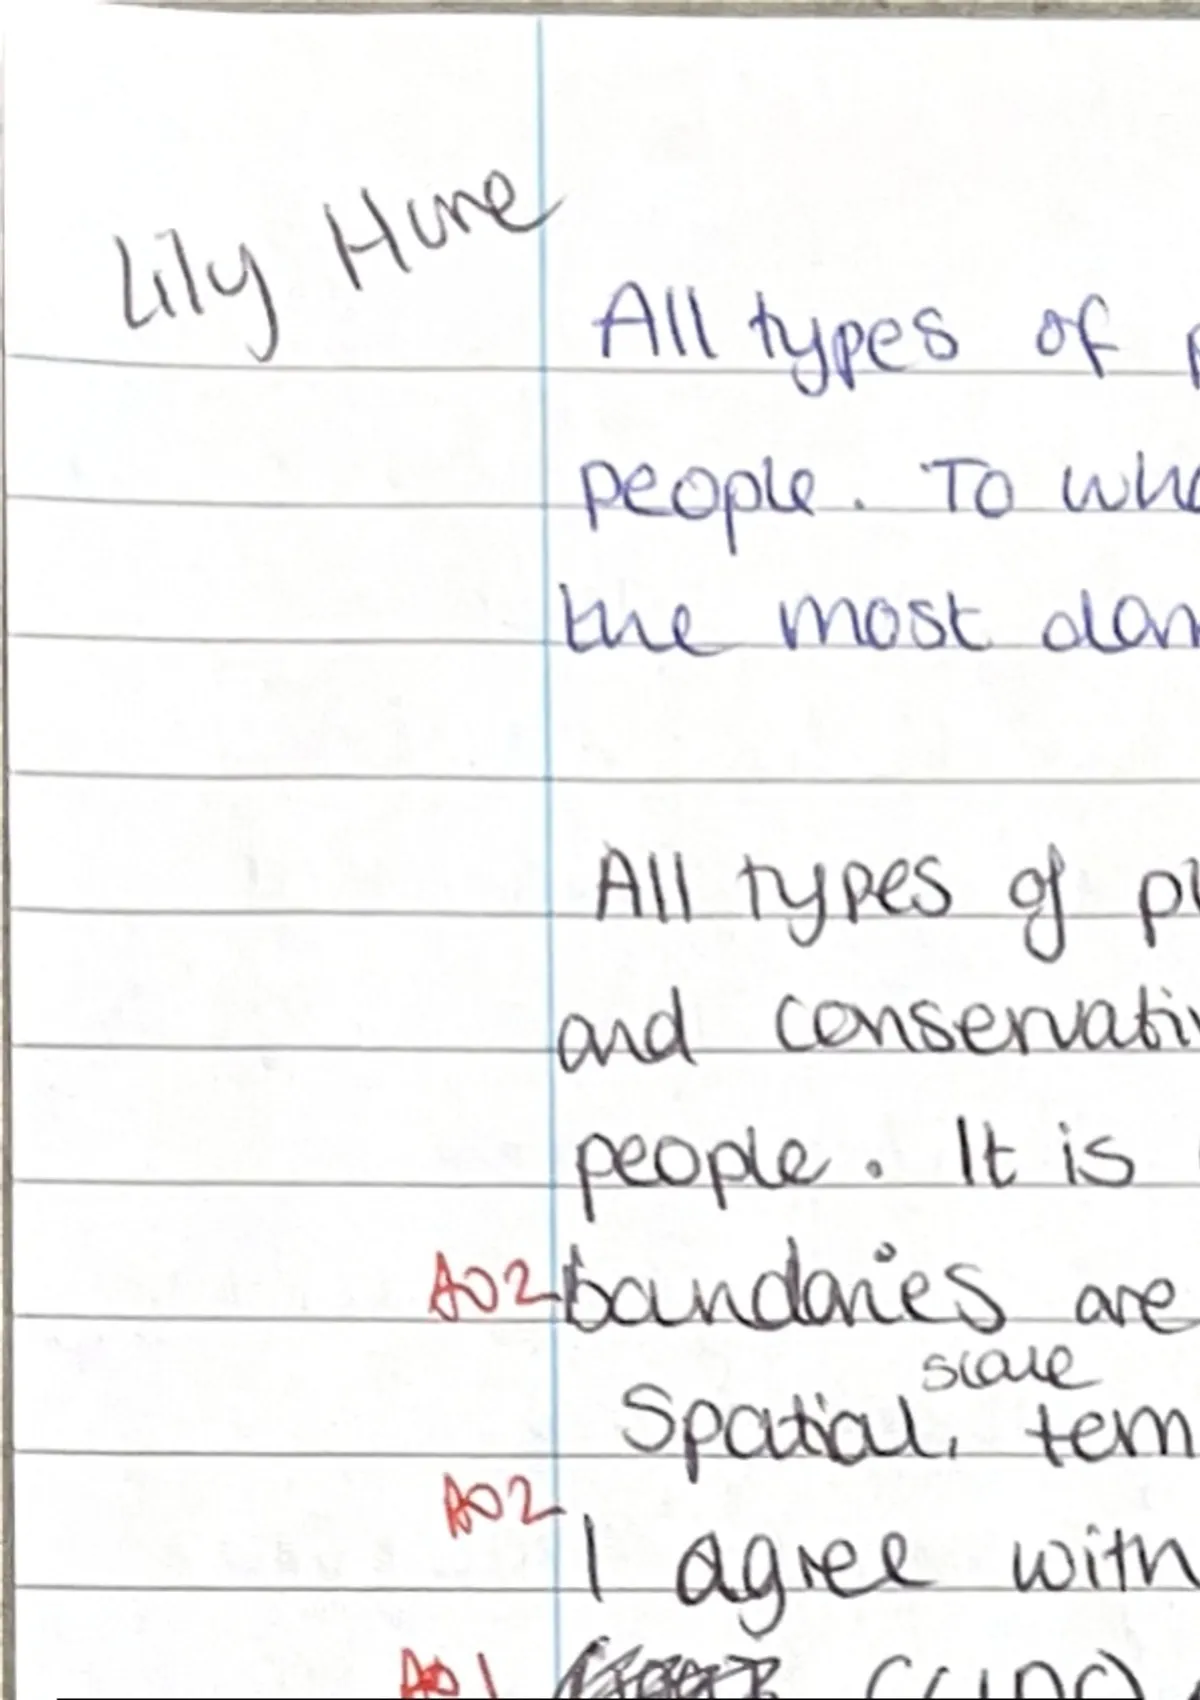 Lily Hune
All types of p
people. To wha
the most dan
All types of pl
and conservativ
people. It is
AO2 boundaries are
scale
Spatial, tem
AO2
I agree with
AO1